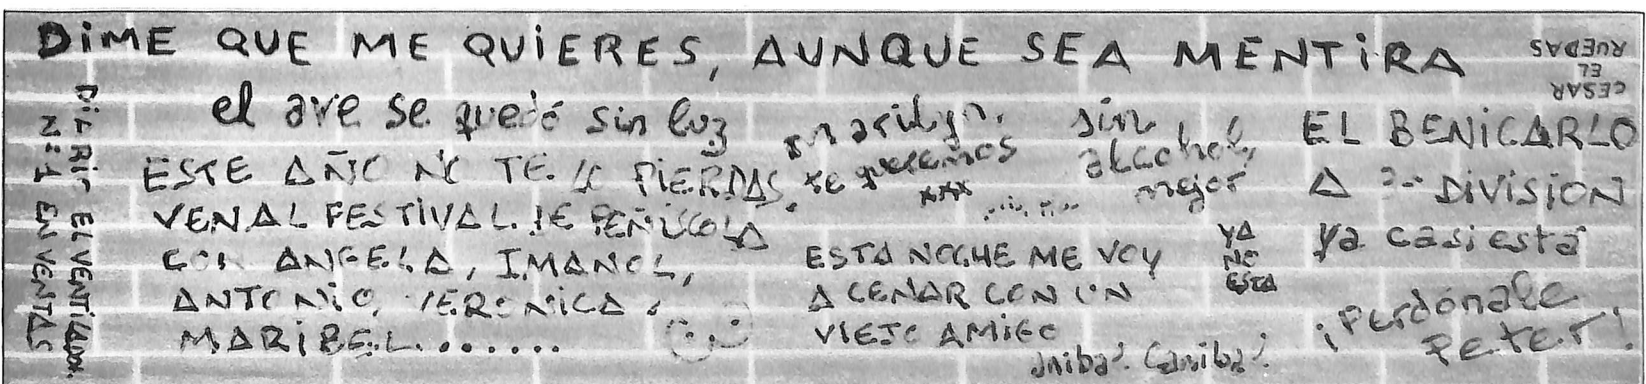 DiME QUE ME QUiERES, AUNQUE SEA MENTiRA
CESAR
EL
RUEDAS
el ave se quedó sin luz
ESTE AÑO NO TE LO PIERDAS,
VEN AL FESTIVAL DE PEÑISCOLA
CON ANGELA, IMANOL,
ANTONIO, VERONICA,
MARIBEL.......
marilyn,
te queremos
xxx
sin
alcohol,
mejor
EL BENICARLO
A 3ª DIVISION
ya casi está
YA
NO
ESTA
ESTA NOCHE ME VOY
A CENAR CON UN
VIEJO AMIGO
anibal Canibal
¡Perdónale
Peter!
DiARiO EL VENTI
Nº 1 EN VENTAS